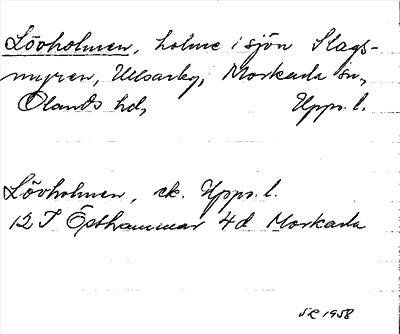 Lövholmen, holme i sjön Slags-
myren, Ulvsarby, Morkarla sn,
Olands hd, Upps. l.
Lövholmen, ek. Upps. l.
12 I Östhammar 4d Morkarla
SR 1958